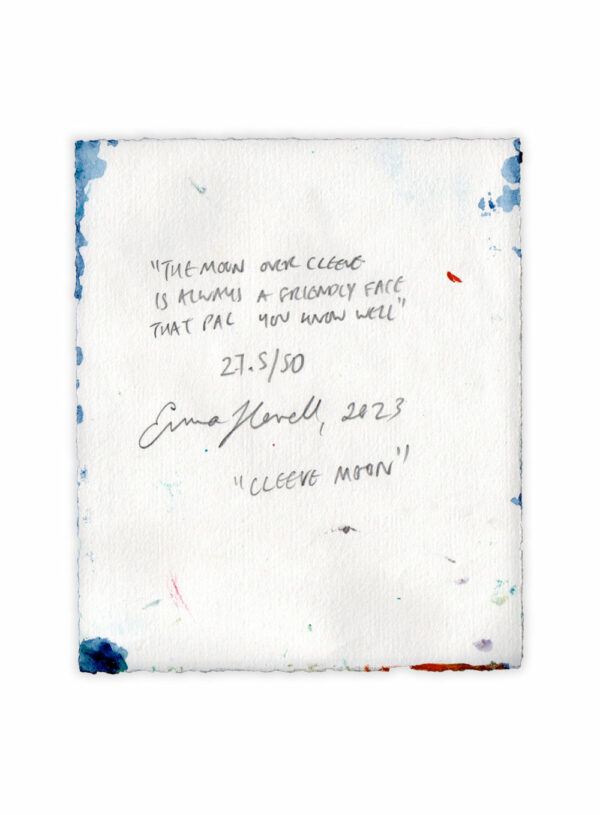 "THE MOON OVER CLEEVE
IS ALWAYS A FRIENDLY FACE
THAT PAL YOU KNOW WELL"
27.5/50
Emma Howell, 2023
"CLEEVE MOON"